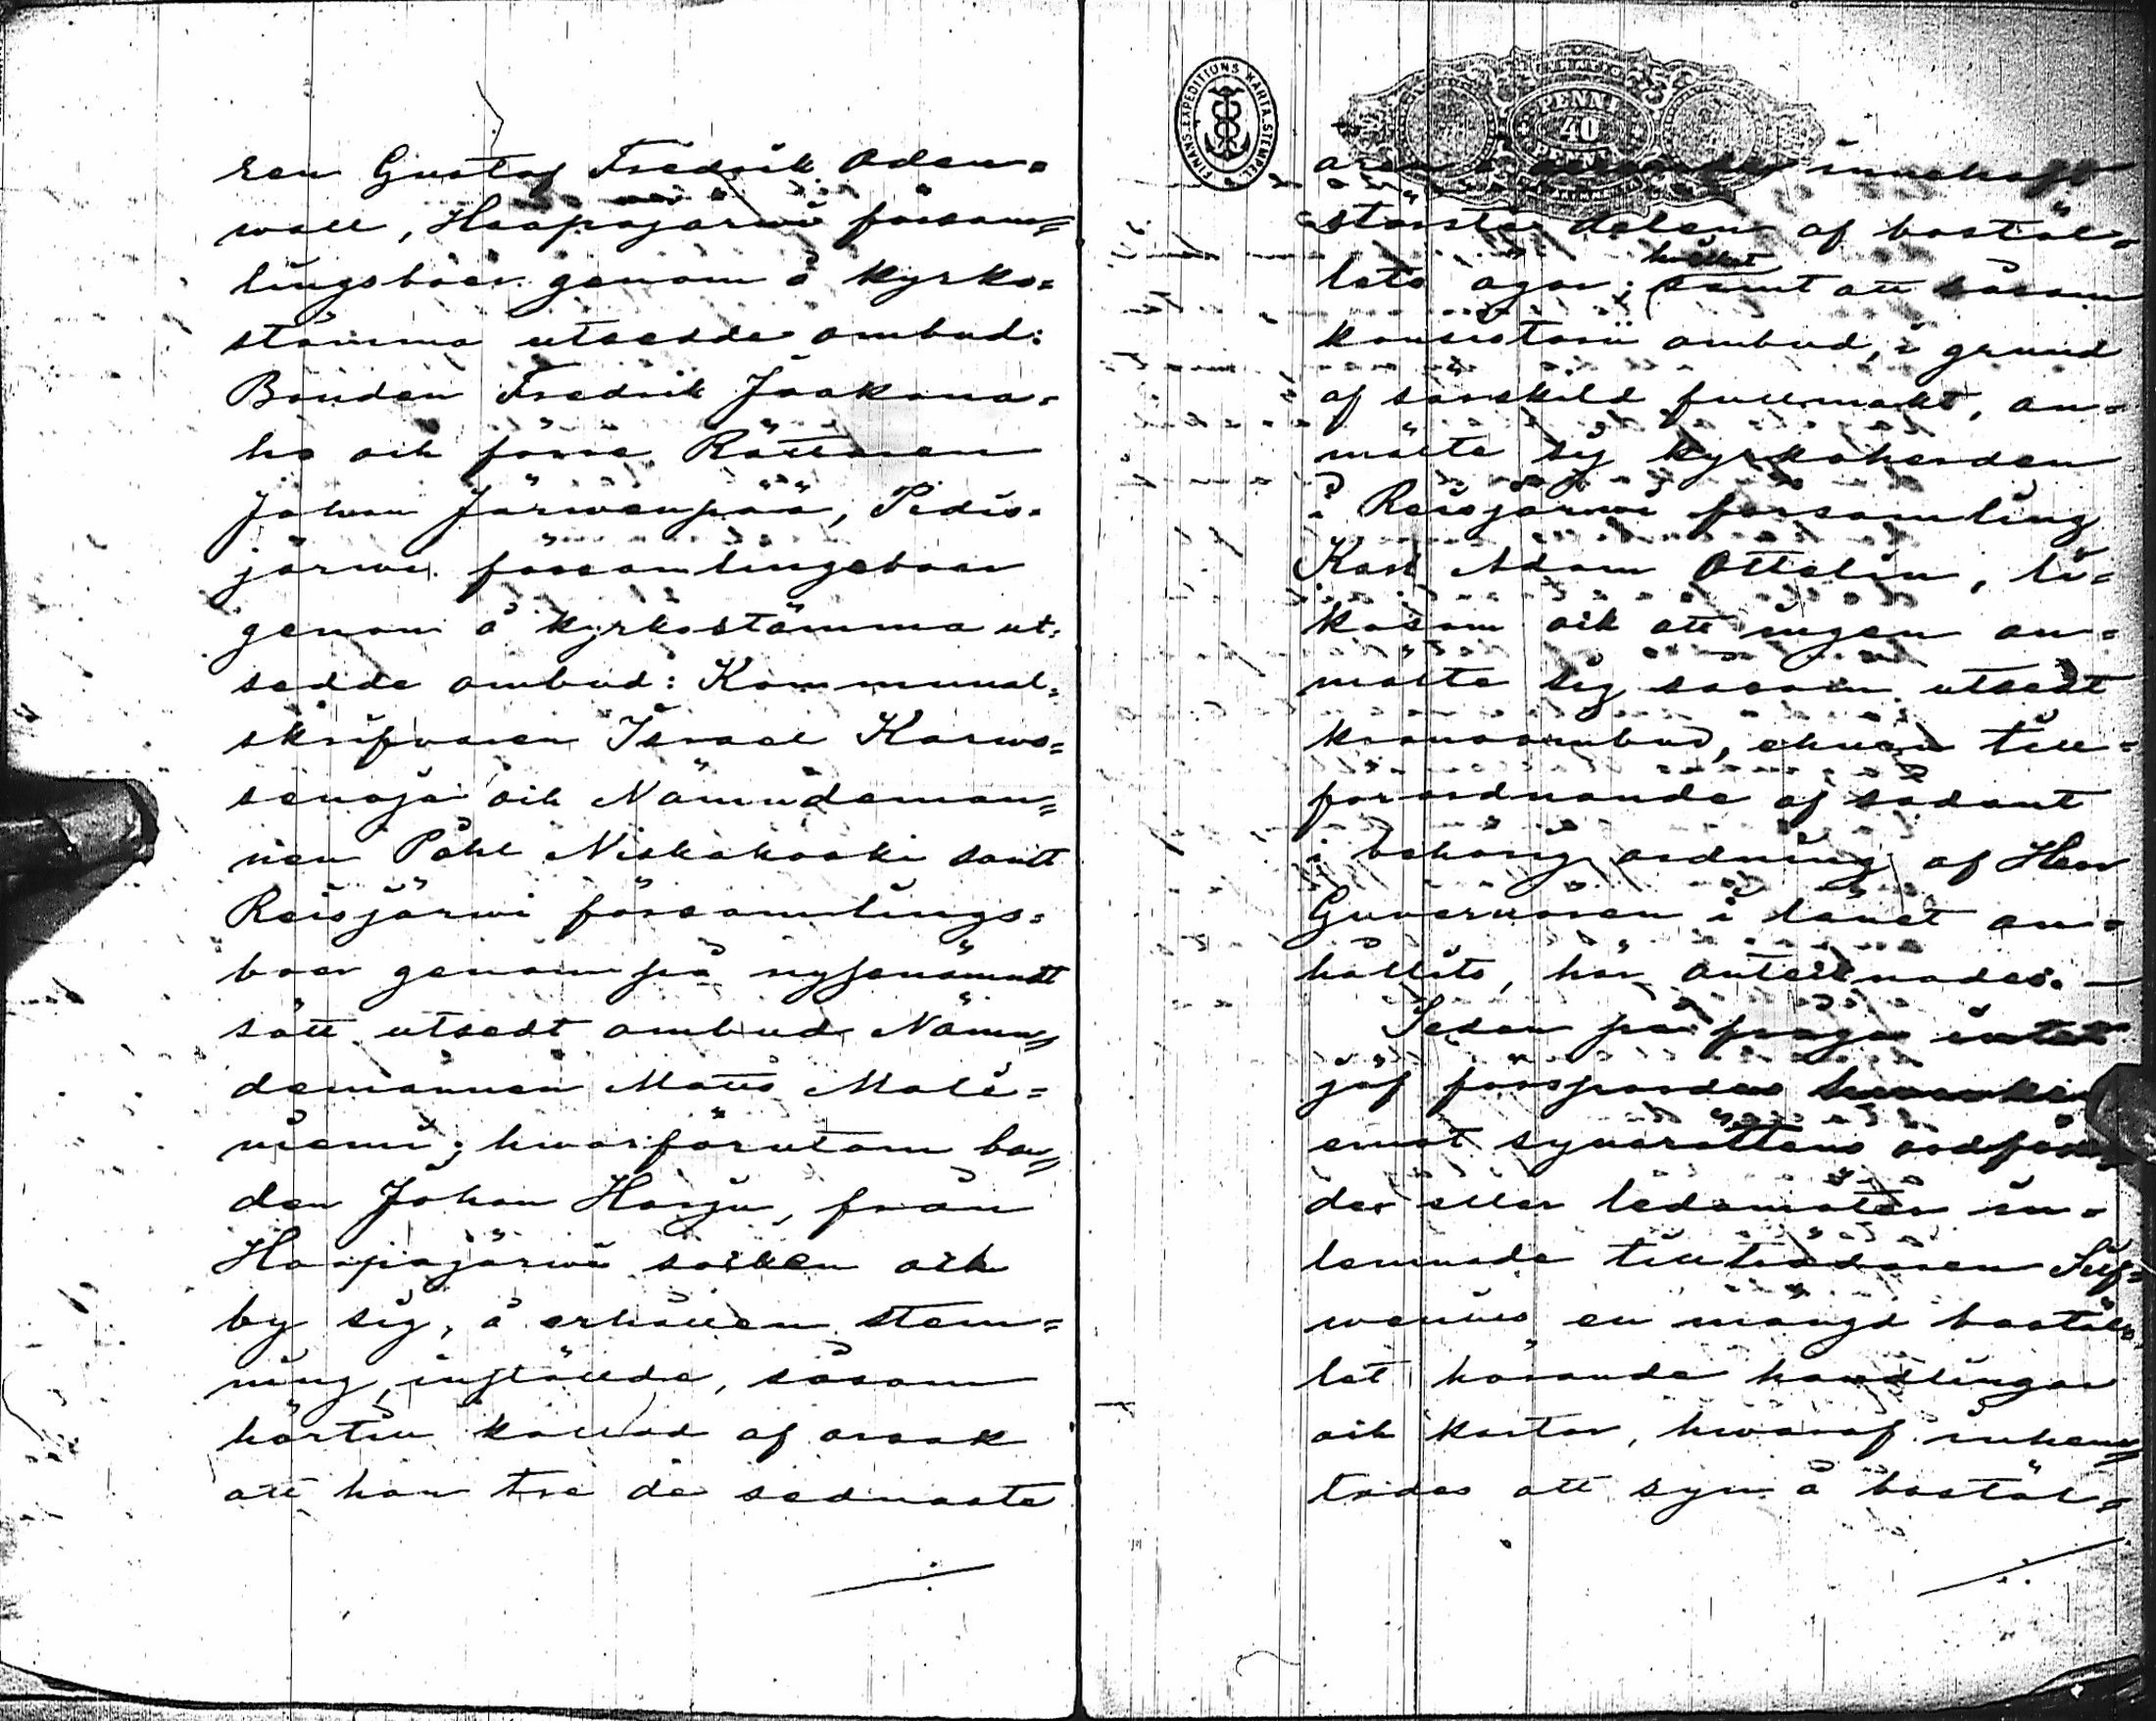 ren Gustaf Fredrik Aden=
wall, Haapajärwi försam=
lingsboer genom å kyrko=
stämma utsedde ombud:
Bonden Fredrik Jaakona=
ho och förre Rättaren
Johan Järwenpää, Pidis=
järwi församlingsboer
genom å kyrkostämma ut=
sedde ombud: Kommunal=
skrifvaren Israel Karwo=
senoja och Nämndeman=
nen Påhl Niskakoski samt
Reisjärwi församlings=
boer genom på nyssnämndt
sätt utsedt ombud Nämn=
demannen Matts Mali=
niemi; hwarförutom bon=
den Johan Harju, från
Haapajärwi socken och
by sig, å erhållen stem=
ning, inställde, såsom
härtill kallad af orsak
att han tre de sednaste
FINMANS EXPEDITIONS KARTA STEMPEL
PENNI
40
åren innehaft
största delen af bostäl=
lets ägor; hvilket samt att såsom
konsistorii ombud, i grund
af särskild fullmakt, an=
mälte sig kyrkoherden
i Reisjärwi församling
Karl Adam Ottelin, li=
kasom och att ingen an=
mälte sig såsom utsedt
kronoombud, ehuru till=
förordnande af sådant
i behörig ordning af Herr
Guvernören i länet an=
hållits, här antecknades. —
Sedan på fråga intet
jäf försports
emot synerättens ordföran=
de eller ledamöter in=
lemnade tillträdaren Sulf=
wenius en mängd bostäl=
let hörande handlingar
och kartor, hwaraf inhem=
tades att syn å bostäl=